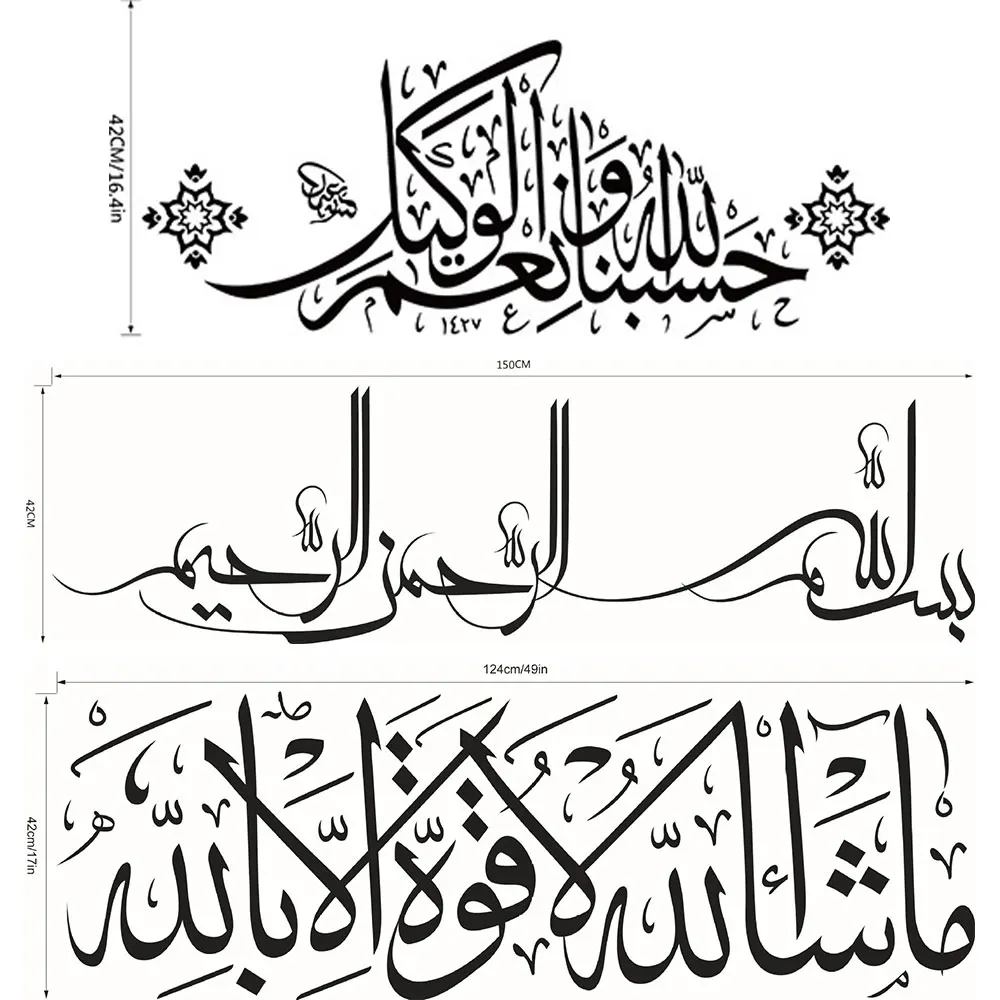 42CM/16.4in
حسبنا الله ونعم الوكيل
١٤٢٧
150CM
42CM
بسم الله الرحمن الرحيم
124cm/49in
42cm/17in
ما شاء الله لا قوة إلا بالله